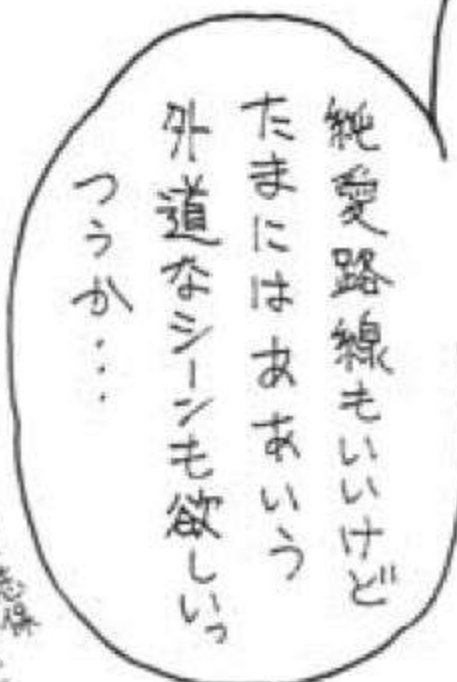 純愛路線もいいけど
たまにはああいう
外道なシーンも欲しいっ
つうか・・・
志保